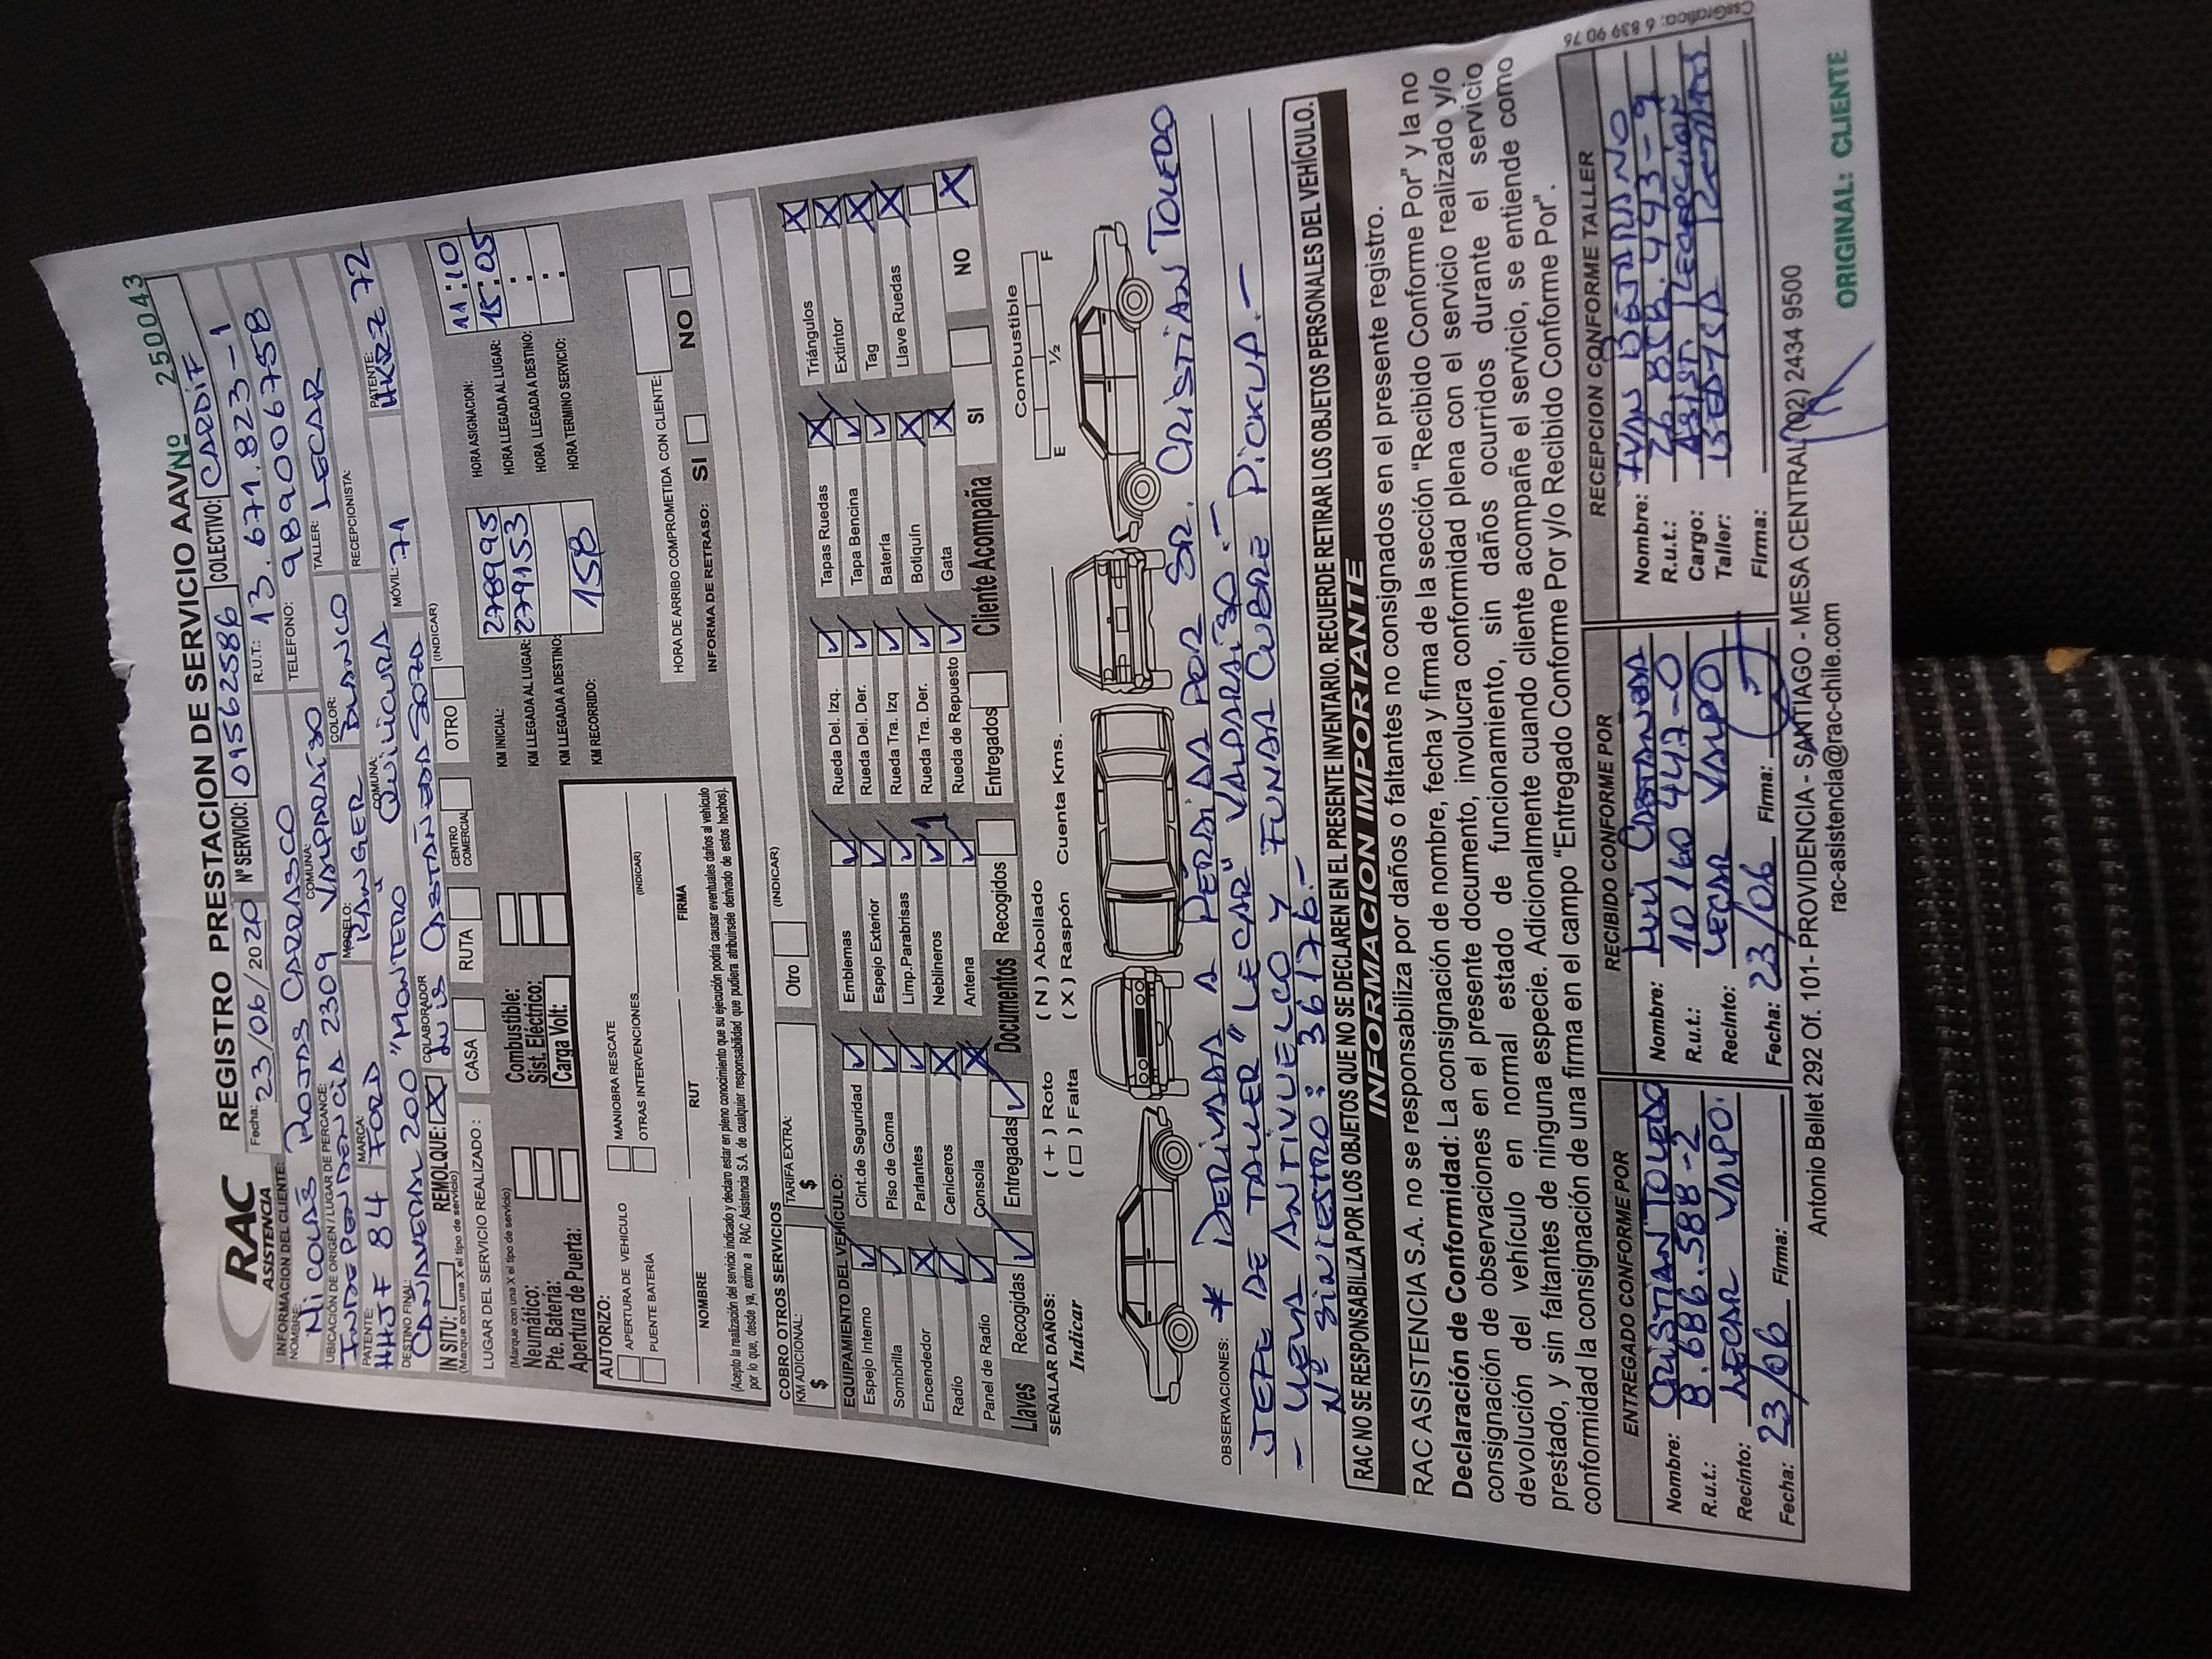 RAC
ASISTENCIA
REGISTRO PRESTACION DE SERVICIO AAV Nº 250043
Fecha: 23/06/2020 Nº SERVICIO: 0956 2586 COLECTIVO: CARDIF
INFORMACION DEL CLIENTE:
NOMBRE: Nicolás Rojas Carrasco R.U.T.: 13.671.823-1
UBICACIÓN DE ORIGEN / LUGAR DE PERCANCE: Independencia 2309 COMUNA: Valparaíso TELEFONO: 9890067 58
PATENTE: HHJF 84 MARCA: Ford MODELO: Ranger COLOR: Blanco TALLER: Lecar
DESTINO FINAL: Cañaveral 200 "Montero" COMUNA: Quilicura RECEPCIONISTA:
IN SITU: REMOLQUE: X COLABORADOR Luis Castañeda MÓVIL: 71 PATENTE: HKRZ 72
(Marque con una X el tipo de servicio)
LUGAR DEL SERVICIO REALIZADO: CASA RUTA CENTRO COMERCIAL OTRO (INDICAR)
(Marque con una X el tipo de servicio)
Neumático: Combustible:
Pte. Batería: Sist. Eléctrico:
Apertura de Puerta: Carga Volt:
KM INICIAL: 278995 HORA ASIGNACION: 11:10
KM LLEGADA AL LUGAR: 279153 HORA LLEGADA AL LUGAR: 15:05
KM LLEGADA A DESTINO: HORA LLEGADA A DESTINO: :
KM RECORRIDO: 158 HORA TERMINO SERVICIO: :
AUTORIZO:
APERTURA DE VEHICULO MANIOBRA RESCATE
PUENTE BATERÍA OTRAS INTERVENCIONES (INDICAR)
NOMBRE RUT FIRMA
(Acepto la realización del servicio indicado y declaro estar en pleno conocimiento que su ejecución podría causar eventuales daños al vehículo
por lo que, desde ya, eximo a RAC Asistencia S.A. de cualquier responsabilidad que pudiera atribuirsele derivado de estos hechos).
HORA DE ARRIBO COMPROMETIDA CON CLIENTE:
INFORMA DE RETRASO: SI NO
COBRO OTROS SERVICIOS
KM ADICIONAL: $ TARIFA EXTRA: $ Otro (INDICAR)
EQUIPAMIENTO DEL VEHÍCULO:
Espejo Interno Cint.de Seguridad Emblemas Rueda Del. Izq. Tapas Ruedas X Triángulos X
Sombrilla Piso de Goma Espejo Exterior Rueda Del. Der. Tapa Bencina Extintor X
Encendedor X Parlantes Limp.Parabrisas Rueda Tra. Izq Batería Tag X
Radio Ceniceros X Neblineros 1 Rueda Tra. Der. Botiquín X Llave Ruedas X
Panel de Radio Consola X Antena Rueda de Repuesto Gata X
Llaves Recogidas Entregadas Documentos Recogidos Entregados Cliente Acompaña SI NO X
SEÑALAR DAÑOS: ( + ) Roto ( N ) Abollado
Indicar ( □ ) Falta ( X ) Raspón Cuenta Kms.
Combustible
E 1/2 F
OBSERVACIONES: * Derivada a pérdida por Sr. Cristian Toledo
Jefe de Taller "Lecar" Valparaíso.-
- Lleva antivuelco y funda cubre pickup.-
Nº Siniestro: 36176.-
RAC NO SE RESPONSABILIZA POR LOS OBJETOS QUE NO SE DECLAREN EN EL PRESENTE INVENTARIO. RECUERDE RETIRAR LOS OBJETOS PERSONALES DEL VEHÍCULO.
INFORMACION IMPORTANTE
RAC ASISTENCIA S.A. no se responsabiliza por daños o faltantes no consignados en el presente registro.
Declaración de Conformidad: La consignación de nombre, fecha y firma de la sección "Recibido Conforme Por" y la no
consignación de observaciones en el presente documento, involucra conformidad plena con el servicio realizado y/o
devolución del vehículo en normal estado de funcionamiento, sin daños ocurridos durante el servicio
prestado, y sin faltantes de ninguna especie. Adicionalmente cuando cliente acompañe el servicio, se entiende como
conformidad la consignación de una firma en el campo "Entregado Conforme Por y/o Recibido Conforme Por".
ENTREGADO CONFORME POR
Nombre: Cristian Toledo
R.u.t.: 8.686.588-2
Recinto: Lecar Valpo.
Fecha: 23/06 Firma:
RECIBIDO CONFORME POR
Nombre: Luis Castañeda
R.u.t.: 10 160 447-0
Recinto: Lecar Valpo
Fecha: 23/06 Firma:
RECEPCION CONFORME TALLER
Nombre: Ivan
R.u.t.: 26.858.493-9
Cargo: Asist. Recepción
Taller:
Firma:
Antonio Bellet 292 Of. 101- PROVIDENCIA - SANTIAGO - MESA CENTRAL (02) 2434 9500
rac-asistencia@rac-chile.com
ORIGINAL: CLIENTE
CssGrafica: 6 839 90 76